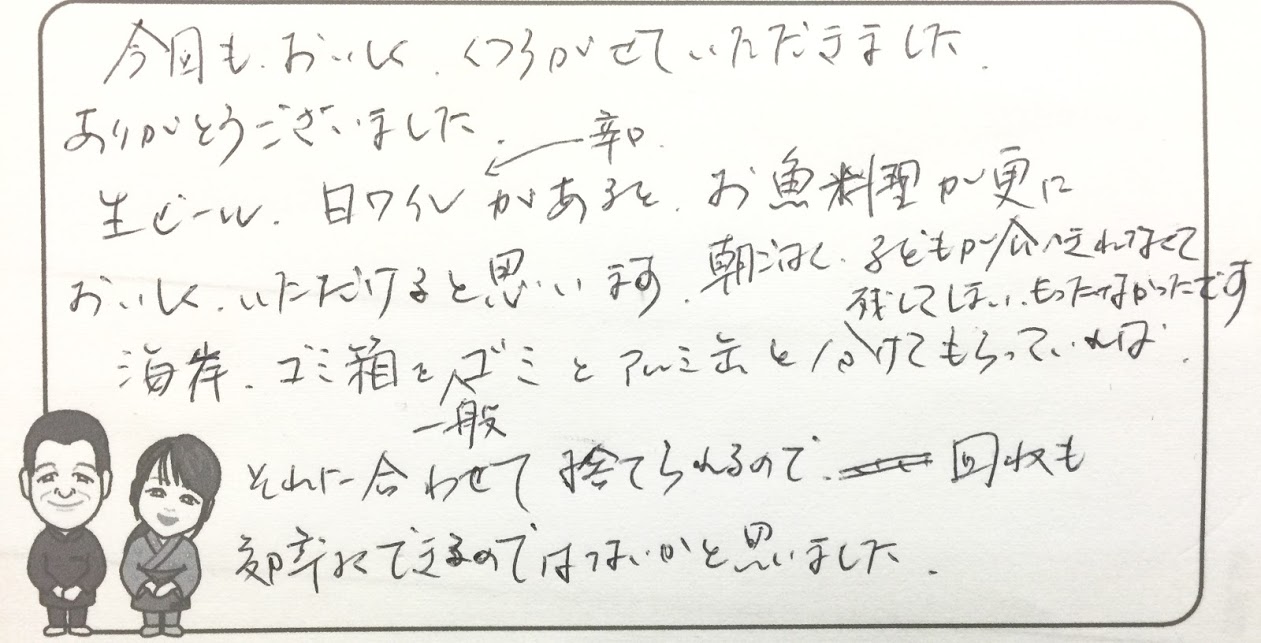 今回も、おいしく、くつろがせていただきました。
ありがとうございました。
辛口
生ビール、白ワインがあると、お魚料理が更に
おいしく、いただけると思います。
朝ごはん、子どもが食べきれなくて
残してしまい、もったなかったです
海岸、ゴミ箱をゴミとアルミ缶と分けてもらっていれば、
一般
それに合わせて捨てられるので、回収も
効率にできるのではないかと思いました。